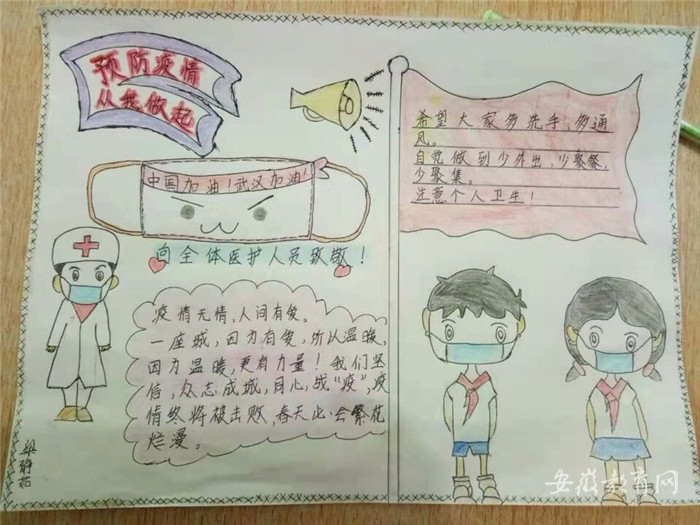 预防疫情
从我做起
中国加油!武汉加油!
向全体医护人员致敬!
疫情无情,人间有爱。
一座城,因为有爱,所以温暖,
因为温暖,更有力量!我们坚
信,众志成城,同心战“疫”,疫
情终将被击败,春天必会繁花
烂漫。
希望大家多洗手,多通
风。
自觉做到少外出,少聚餐,
少聚集。
注意个人卫生!
梁静茹
安徽教育网